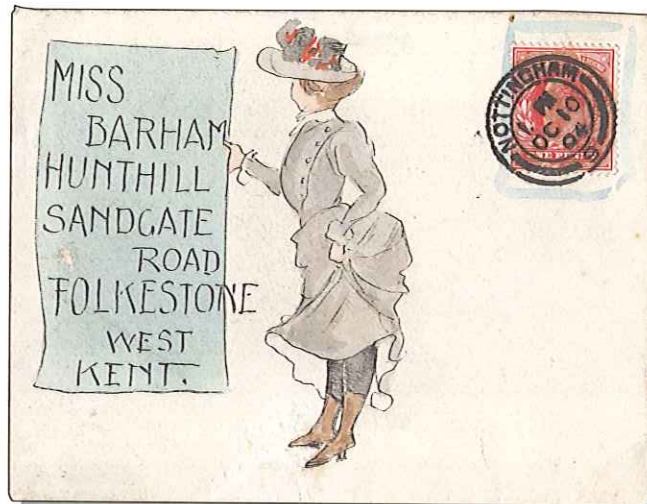 MISS
BARHAM
HUNTHILL
SANDGATE
ROAD
FOLKESTONE
WEST
KENT.
NOTTINGHAM
OC 10
04